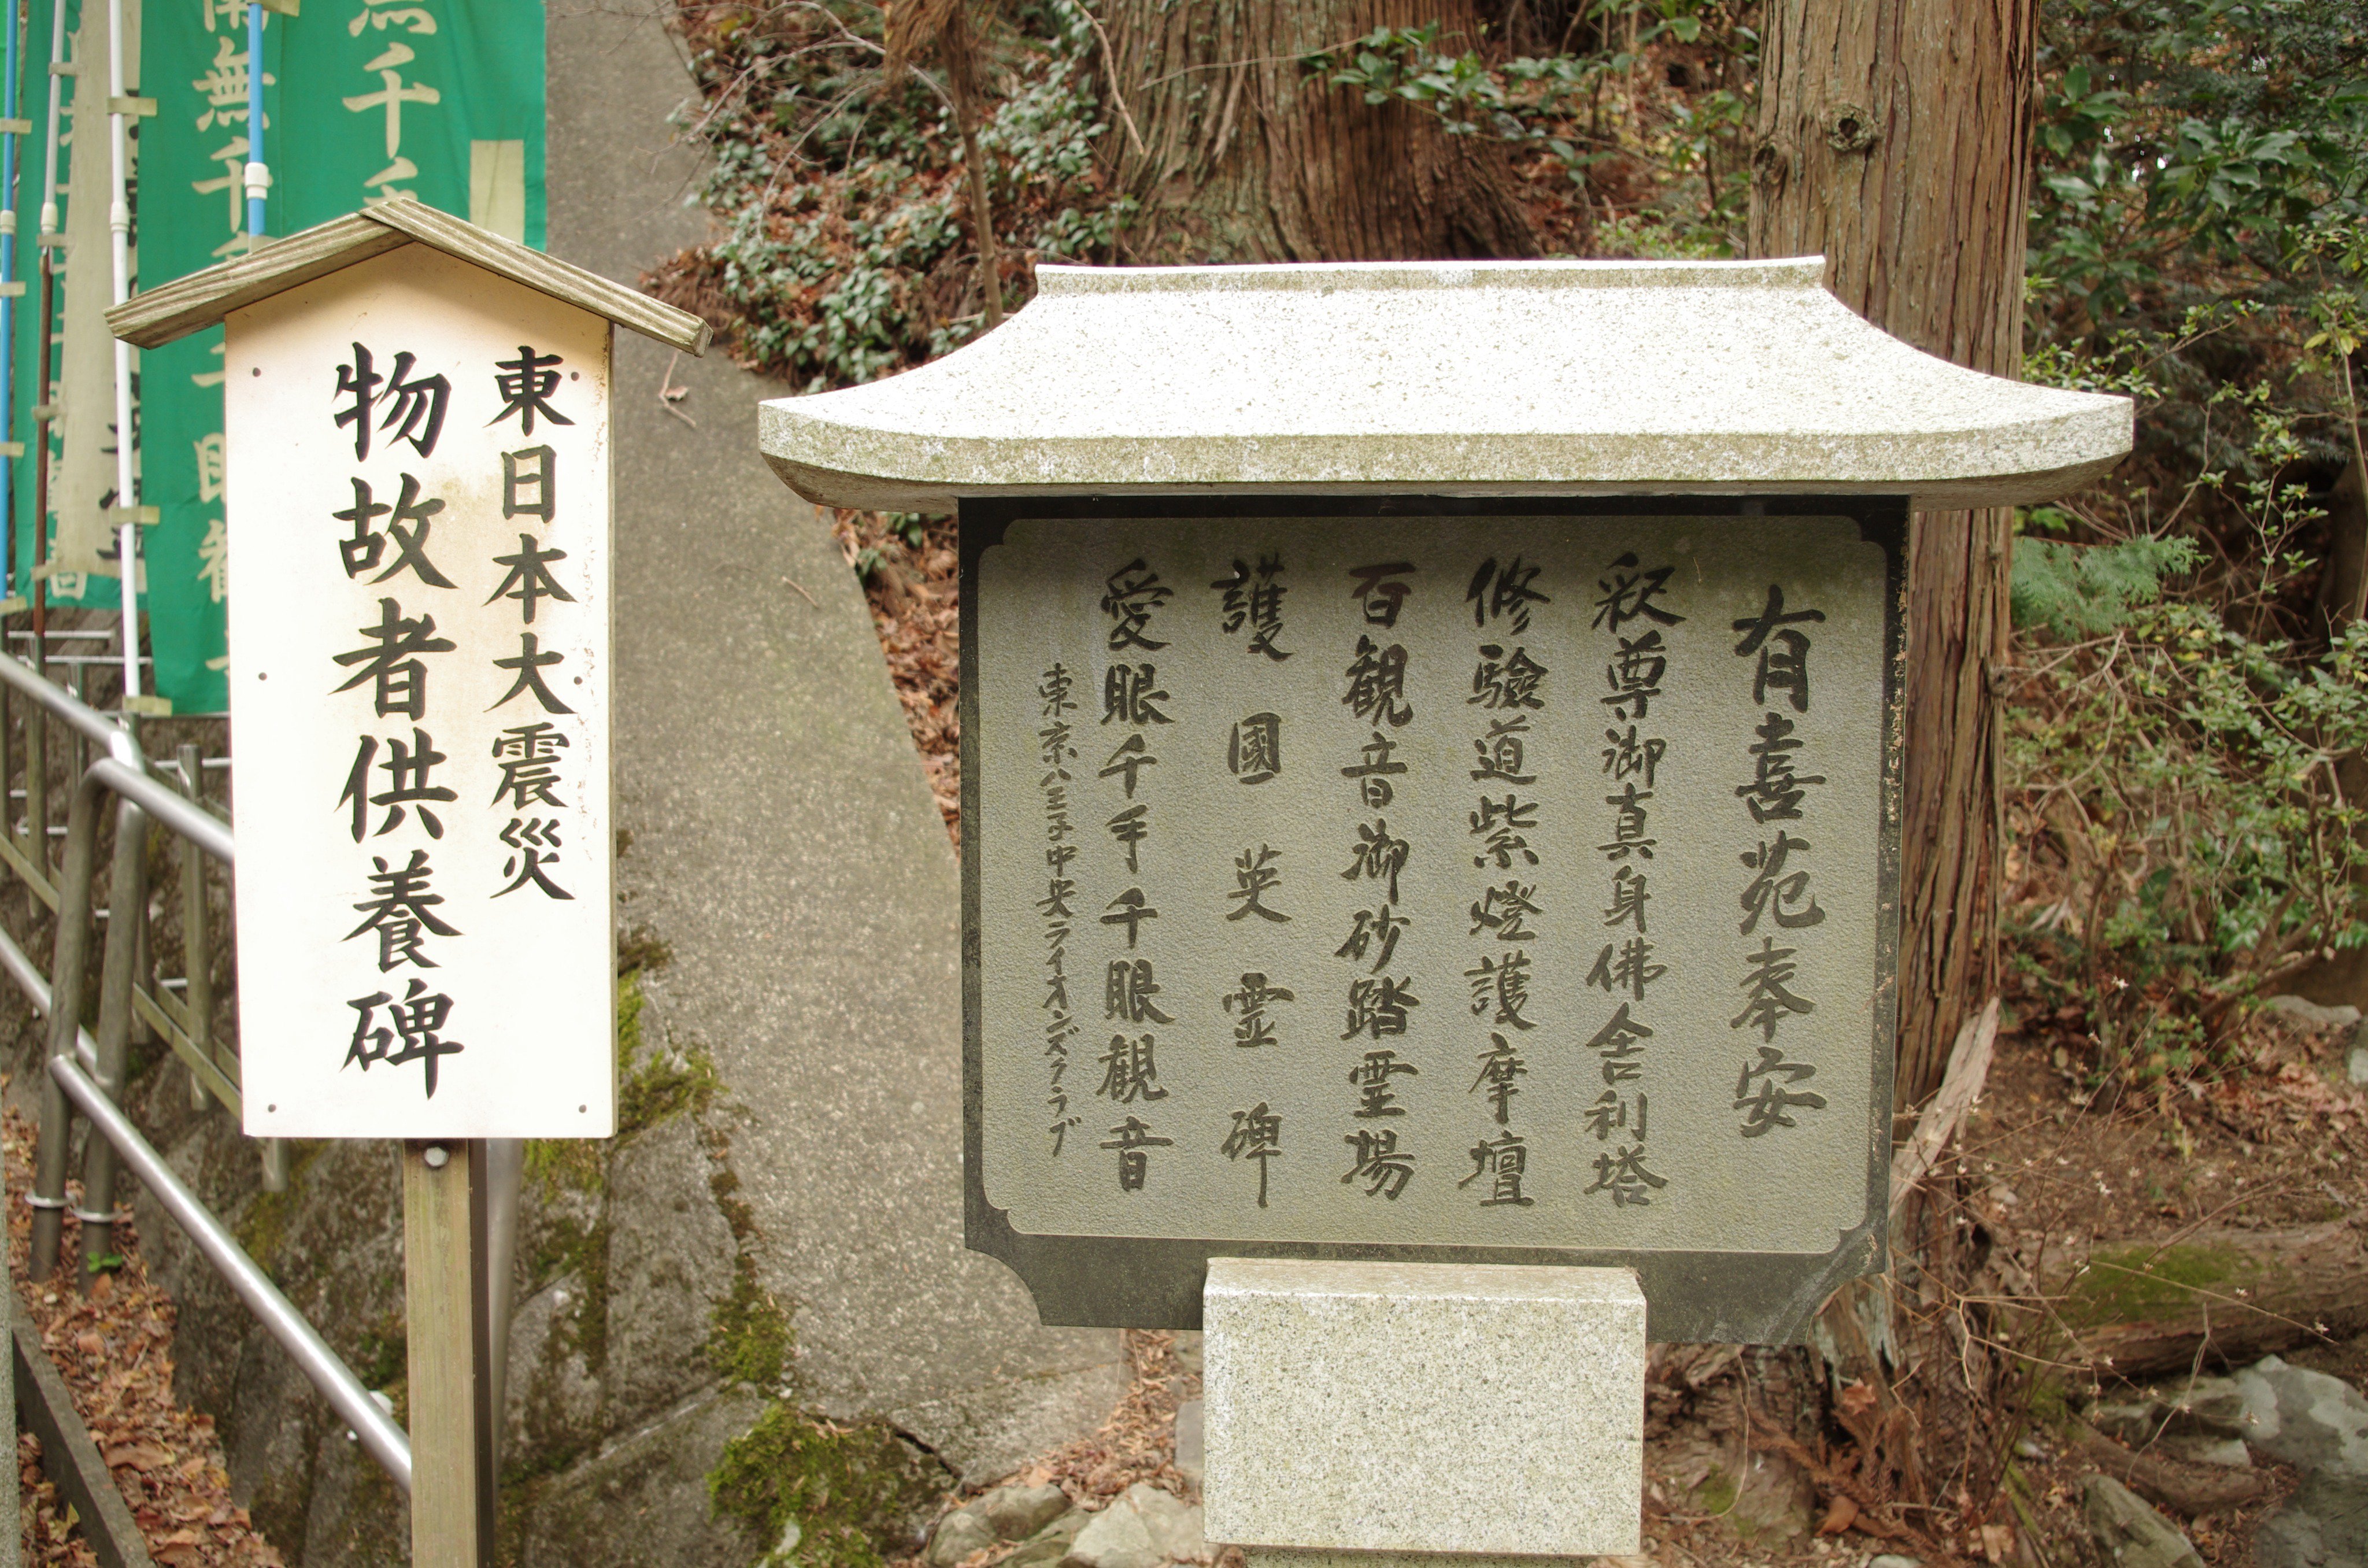 東日本大震災
物故者供養碑
有喜苑奉安
釈尊御真身佛舎利塔
修驗道紫燈護摩壇
百観音御砂踏霊場
護國英霊碑
愛眼千手千眼観音
東京八王子中央ライオンズクラブ
無千手
南無千手